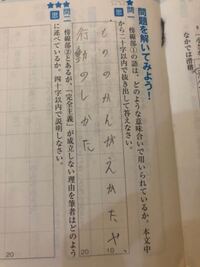 問題を解いてみよう！
問一 傍線部①の語は、どのような意味合いで用いられているか。本文中
から二十字以内で抜き出して答えなさい。
もののかんがえかたや
行動のしかた
10
20
問二 傍線部②とあるが、「完全主義」が成立しない理由を筆者はどのよう
に述べているか。四十字以内で説明しなさい。
20